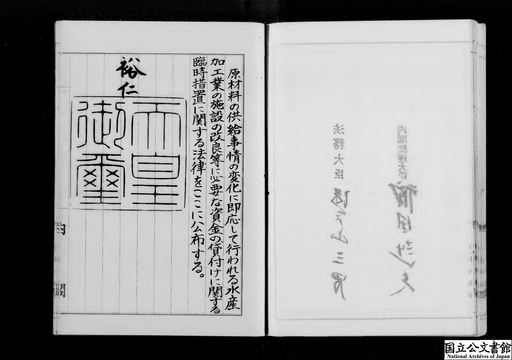 原材料の供給事情の変化に即応して行われる水産
加工業の施設の改良等に必要な資金の貸付けに関する
臨時措置に関する法律をここに公布する。
裕仁
天皇
御璽
内閣
内閣総理大臣
福田赳夫
法務大臣
国立公文書館
National Archives of Japan